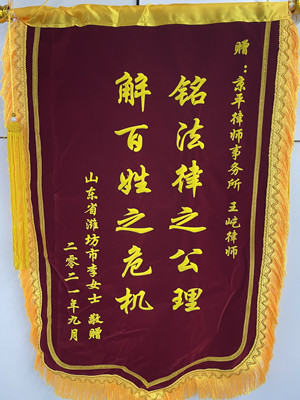 赠：京平律师事务所 王屹律师
铭法律之公理
解百姓之危机
山东省潍坊市李女士 敬赠
二零二一年九月